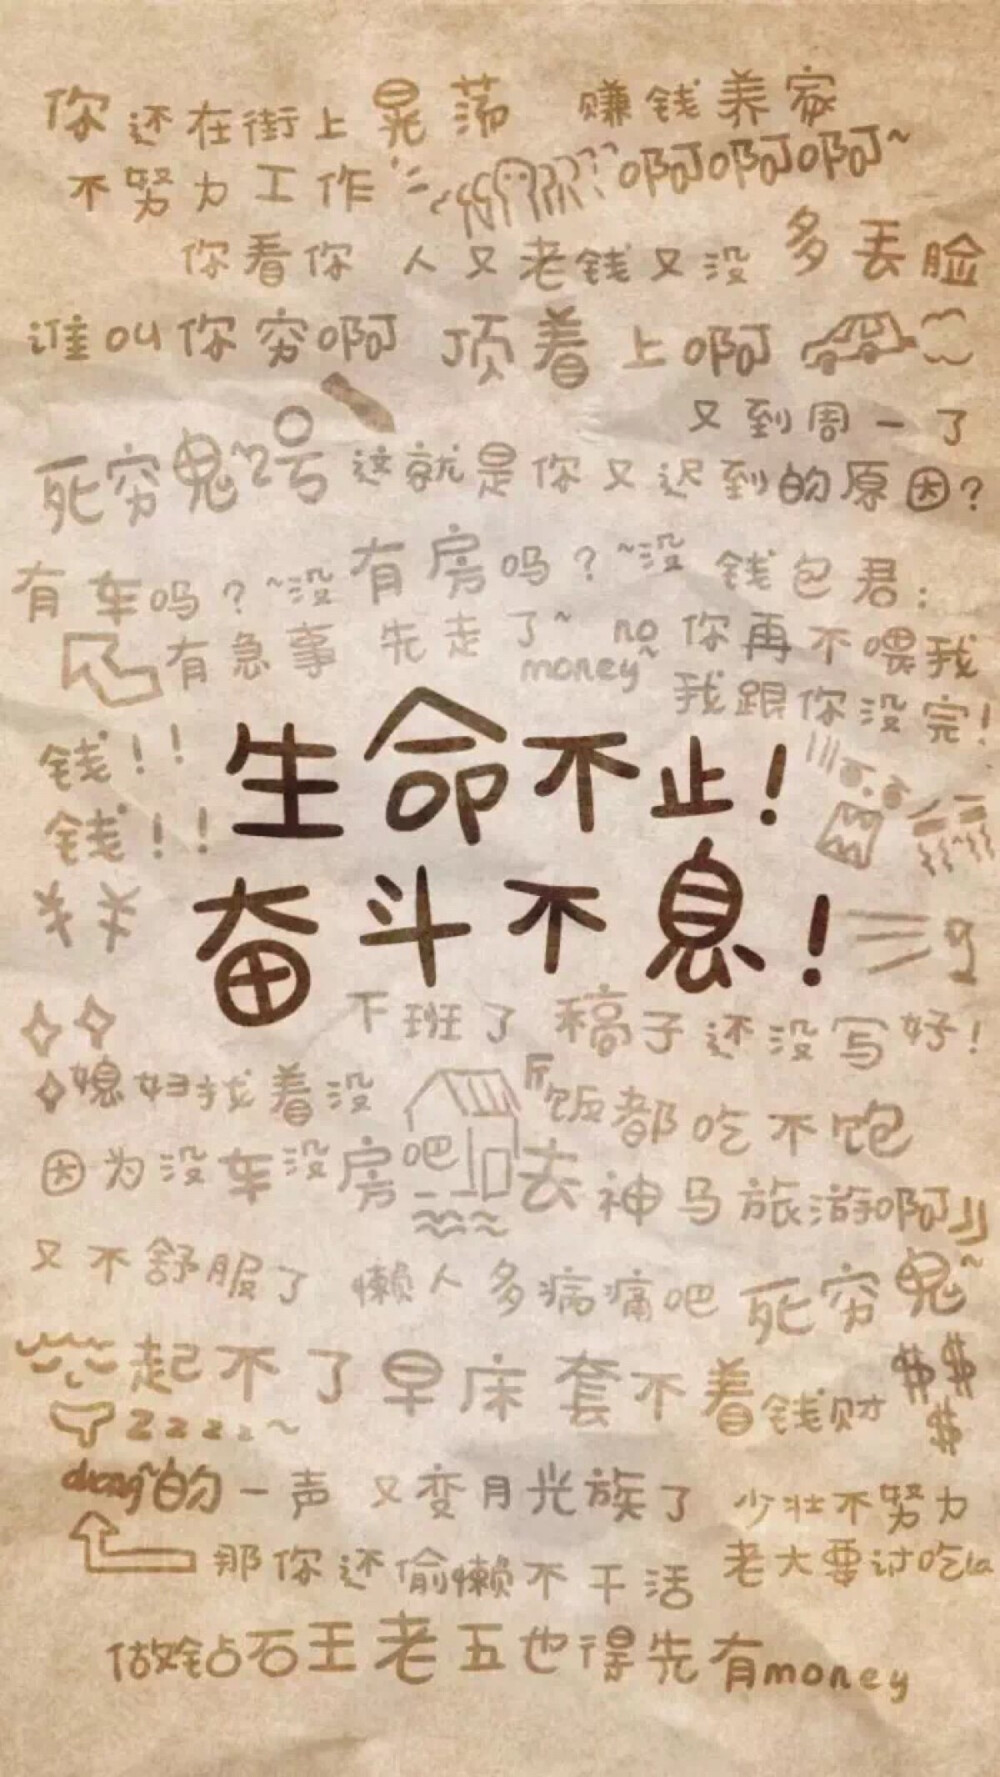 你还在街上晃荡 赚钱养家
不努力工作 啊啊啊~
你看你 人又老钱又没 多丢脸
谁叫你穷啊 顶着上啊
又到周一了
死穷鬼~2号 这就是你又迟到的原因?
有车吗?~没 有房吗?~没 钱包君:
有急事 先走了~ no money~ 你再不喂我
我跟你没完!
钱!!
钱!!
生命不止!
奋斗不息!
下班了 稿子还没写好!
媳妇找着没 饭都吃不饱
因为没车没房吧 去神马旅游啊
又不舒服了 懒人多病痛吧 死穷鬼~
起不了早床 套不着钱财
$$
$
zzzzz~
duang~的一声 又变月光族了 少壮不努力
那你还偷懒不干活 老大要讨吃la
做钻石王老五也得先有money